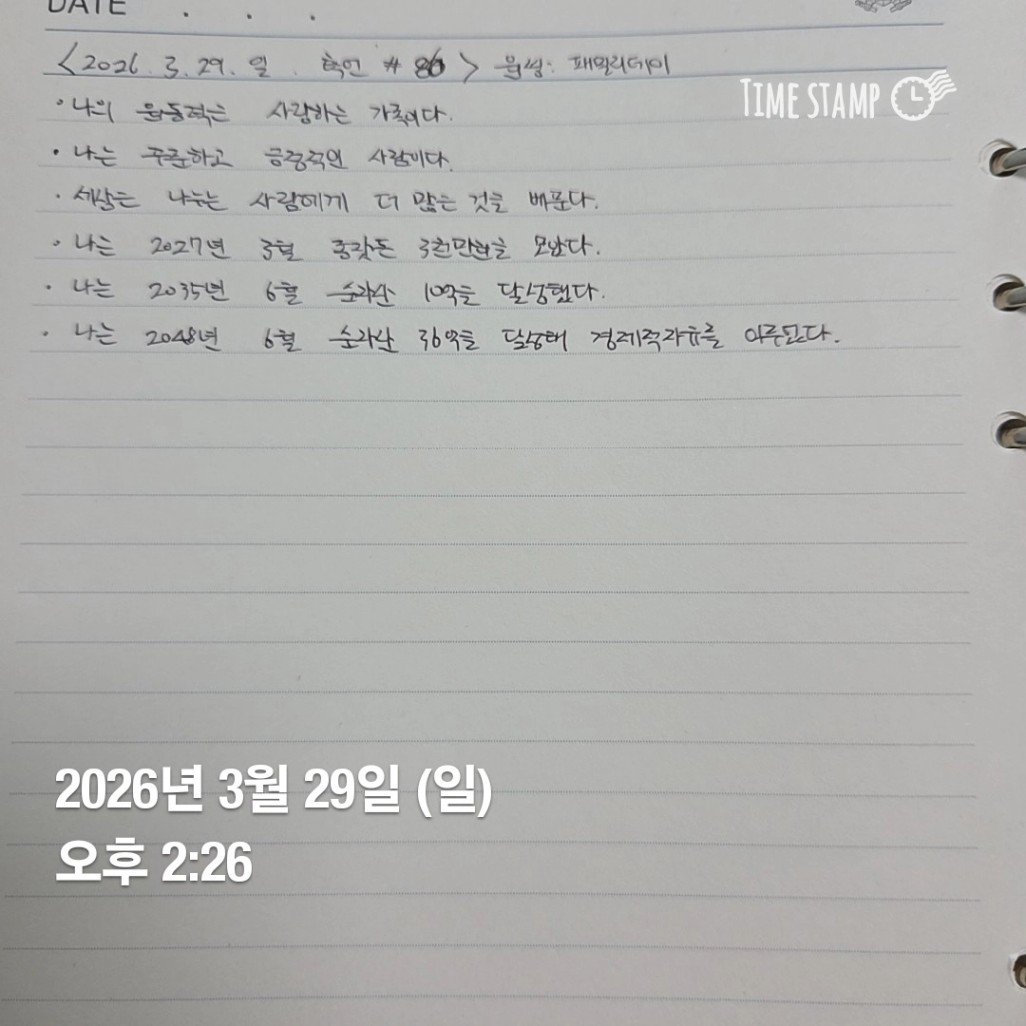 DATE . . .
<2026. 3. 29. 일. 확언 # 86> 원씽: 패밀리데이
TIME STAMP
· 나의 원동력은 사랑하는 가족이다.
· 나는 꾸준하고 긍정적인 사람이다.
· 세상은 나누는 사람에게 더 많은 것을 베푼다.
· 나는 2027년 3월 종잣돈 3천만원을 모았다.
· 나는 2035년 6월 순자산 10억을 달성했다.
· 나는 2048년 6월 순자산 36억을 달성해 경제적자유를 이루었다.
2026년 3월 29일 (일)
오후 2:26